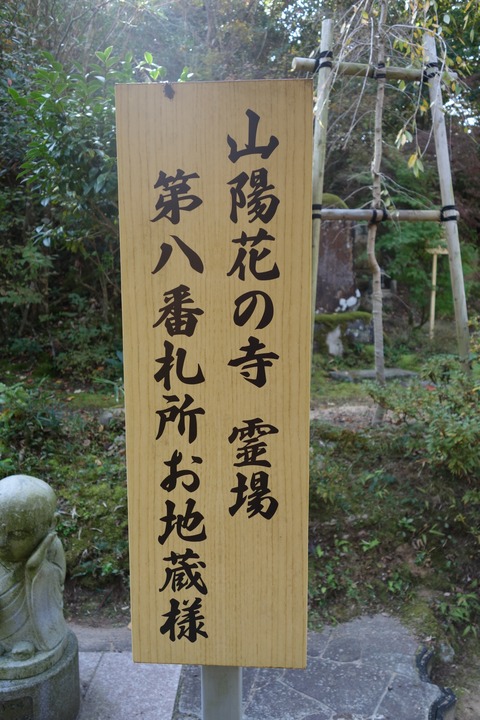 山陽花の寺 霊場
第八番札所お地蔵様